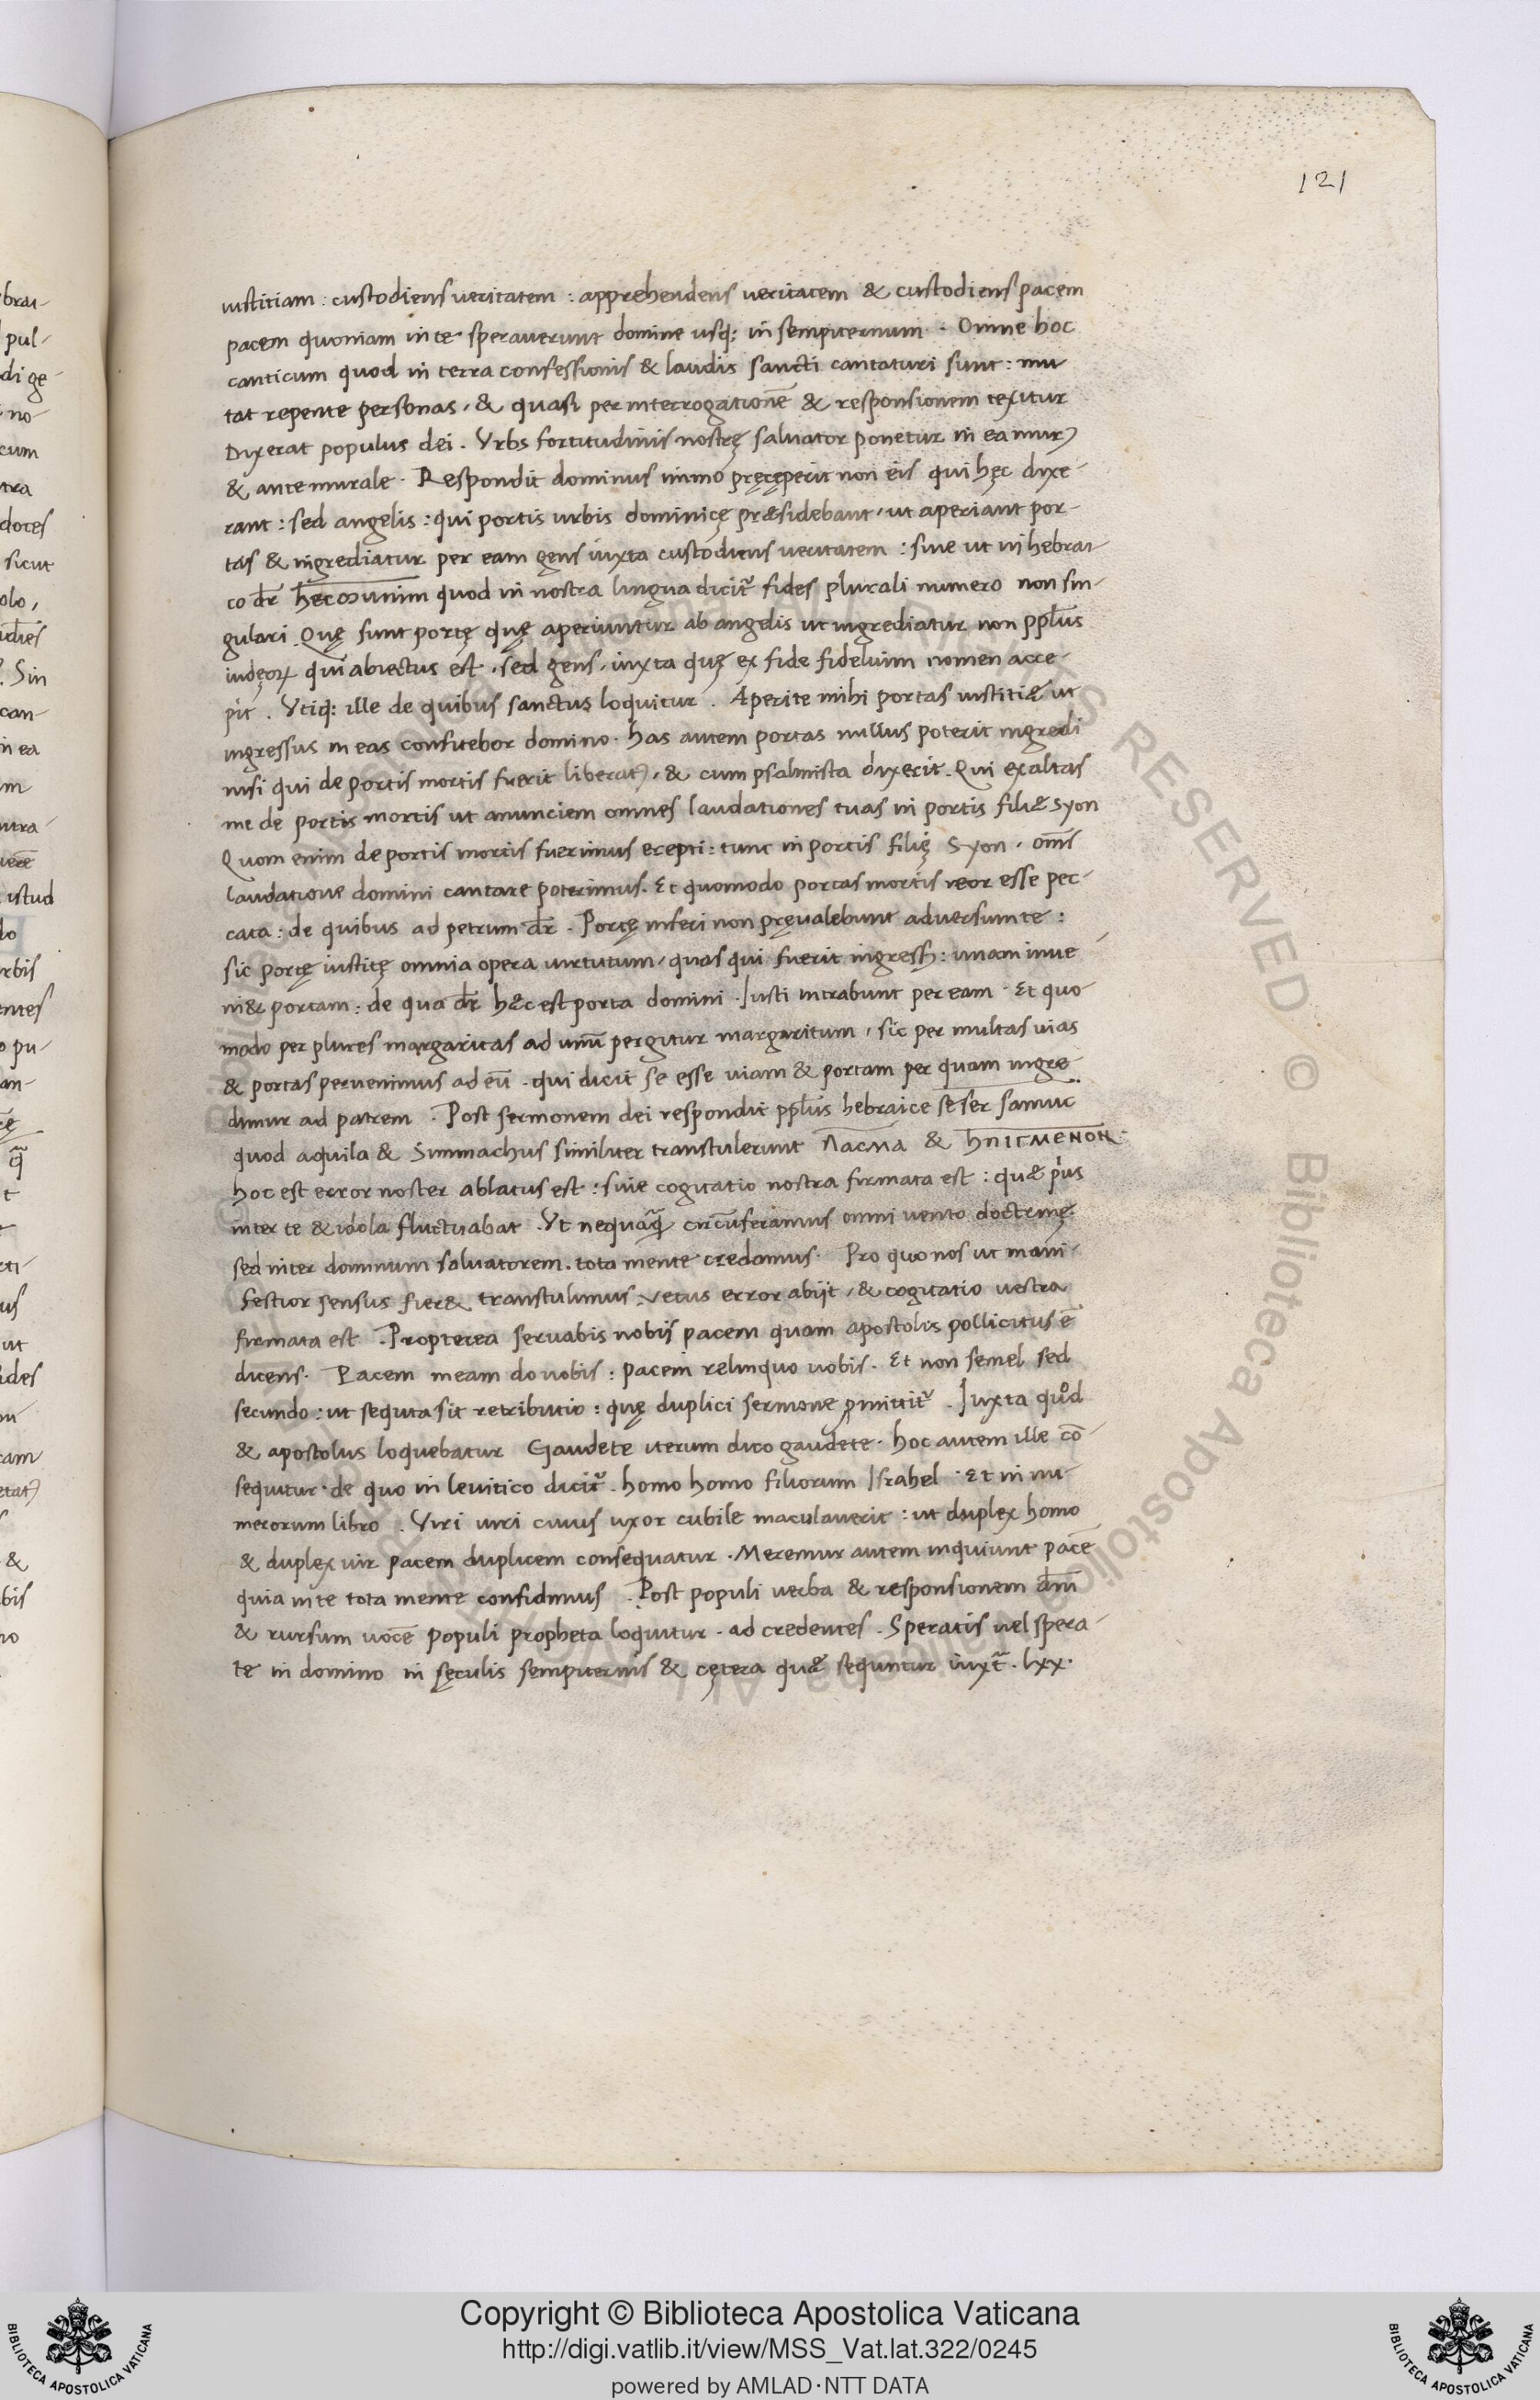 121
iustitiam : custodiens ueritatem : apprehendens ueritatem & custodiens pacem
pacem quoniam in te sperauerunt domine usq; in sempiternum . Omne hoc
canticum quod in terra confessionis & laudis sancti cantaturi sunt : mu
tat repente personas , & quasi per interrogationē & responsionem texitur
Dixerat populus dei . Vrbs fortitudinis nostrę saluator ponetur in ea murꝰ
& ante murale . Respondit dominus immo pręcęperit non eis qui hęc dixe-
rant : sed angelis : qui portis urbis dominicę præsidebant , ut aperiant por-
tas & ingrediatur per eam gens iuxta custodiens ueritatem : siue ut in hebrai-
co dr̄ quod in nostra lingua dicit᷑ fides plurali numero non sin-
gulari . Quę sunt portę quę aperiuntur ab angelis ut ingrediatur non ppl̄us
iudęoꝝ qui abiectus est , sed gens , iuxta quę ex fide fideluim nomen acce-
pit . Vtiq; ille de quibus sanctus loquitur . Aperite mihi portas iustitiæ ut
ingressus in eas confitebor domino . has autem portas nullus poterit ingredi
nisi qui de portis mortis fuerit liberatꝰ , & cum psalmista dixerit . Qui exaltas
me de portis mortis ut anunciem omnes laudationes tuas in portis filiæ Syon
Quom enim de portis mortis fuerimus erepti : tunc in portis filię Syon , om̄s
laudatione domini cantare poterimus . Et quomodo portas mortis reor esse pec-
cata : de quibus ad petrum dr̄ . Portę inferi non pręualebunt aduersum te :
sic portę iustitę omnia opera uirtutum , quas qui fuerit ingressꝰ : unam inue-
ni& portam : de qua dr̄ hæc est porta domini . Iusti intrabunt per eam . Et quo
modo per plures margaritas ad unū pergitur margaritum , sic per multas uias
& portas peruenimus ad eū . qui dicit se esse uiam & portam per quam ingre-
dimur ad patrem . Post sermonem dei respondit ppl̄us hebraice seser samuc
quod aquila & Simmachus similiter transtulerunt &
hoc est error noster ablatus est : siue cogitatio nostra firmata est : quæ pⁱus
inter te & idola fluctuabat . Vt nequaq̄ circūferamus omni uento doctrinę
sed inter dominum saluatorem . tota mente credamus . Pro quo nos ut mani-
festior sensus fier& transtulimus : vetus error abijt , & cogitatio uestra
firmata est . Propterea seruabis nobis pacem quam apostolis pollicitus ē
dicens . Pacem meam do uobis : pacem relinquo uobis . Et non semel sed
secundo : ut sequta sit retributio : quę duplici sermone ꝓmittit᷑ . Iuxta quod
& apostolus loquebatur Gaudete iterum dico gaudete . hoc autem ille cō-
sequitur . de quo in leuitico dicit᷑ . homo homo filiorum Israhel . Et in nu-
merorum libro . Viri uiri cuius uxor cubile maculauerit : ut duplex homo
& duplex uir pacem duplicem consequatur . Meremur autem inquiunt pacē
quia in te tota mente confidimus . Post populi uerba & responsionem dn̄i
& rursum uocē populi propheta loquitur . ad credentes . Speratis uel spera-
te in domino in sęculis sempiternis & cętera quæ sequntur iuxt̄ . lxx .
Copyright © Biblioteca Apostolica Vaticana
http://digi.vatlib.it/view/MSS_Vat.lat.322/0245
powered by AMLAD·NTT DATA
BIBLIOTECA APOSTOLICA VATICANA
BIBLIOTECA APOSTOLICA VATICANA